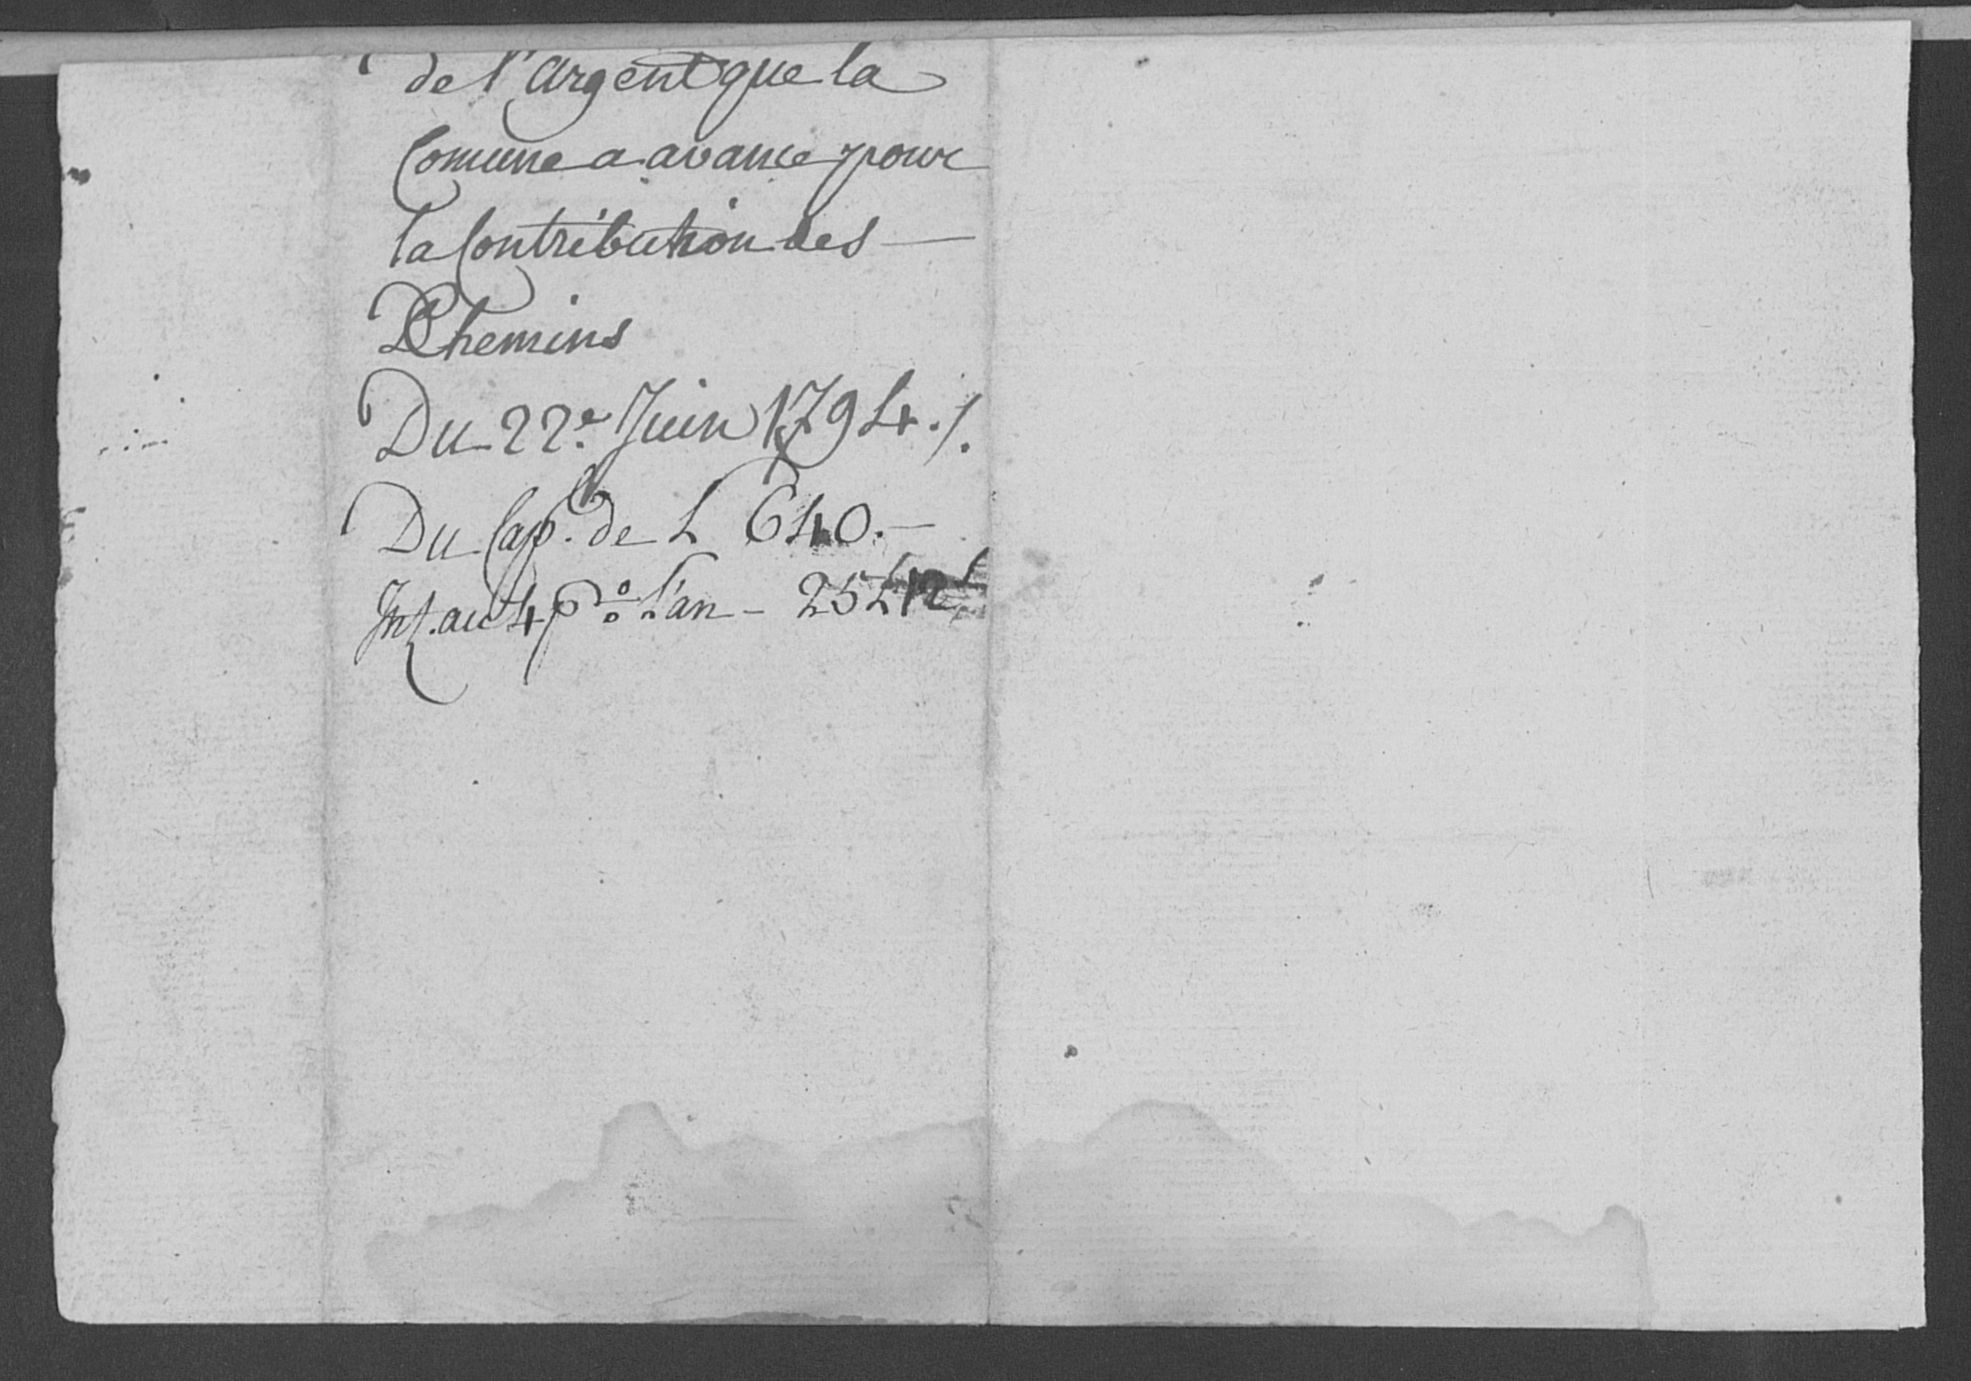 de l'argent que la
Comune a avance pour
la Contribution des —
Chemins
Du 22.e Juin 1794 ./.
Du Cap. de L 640.—
Int. au 4 p% l'an – 25 L 12 s